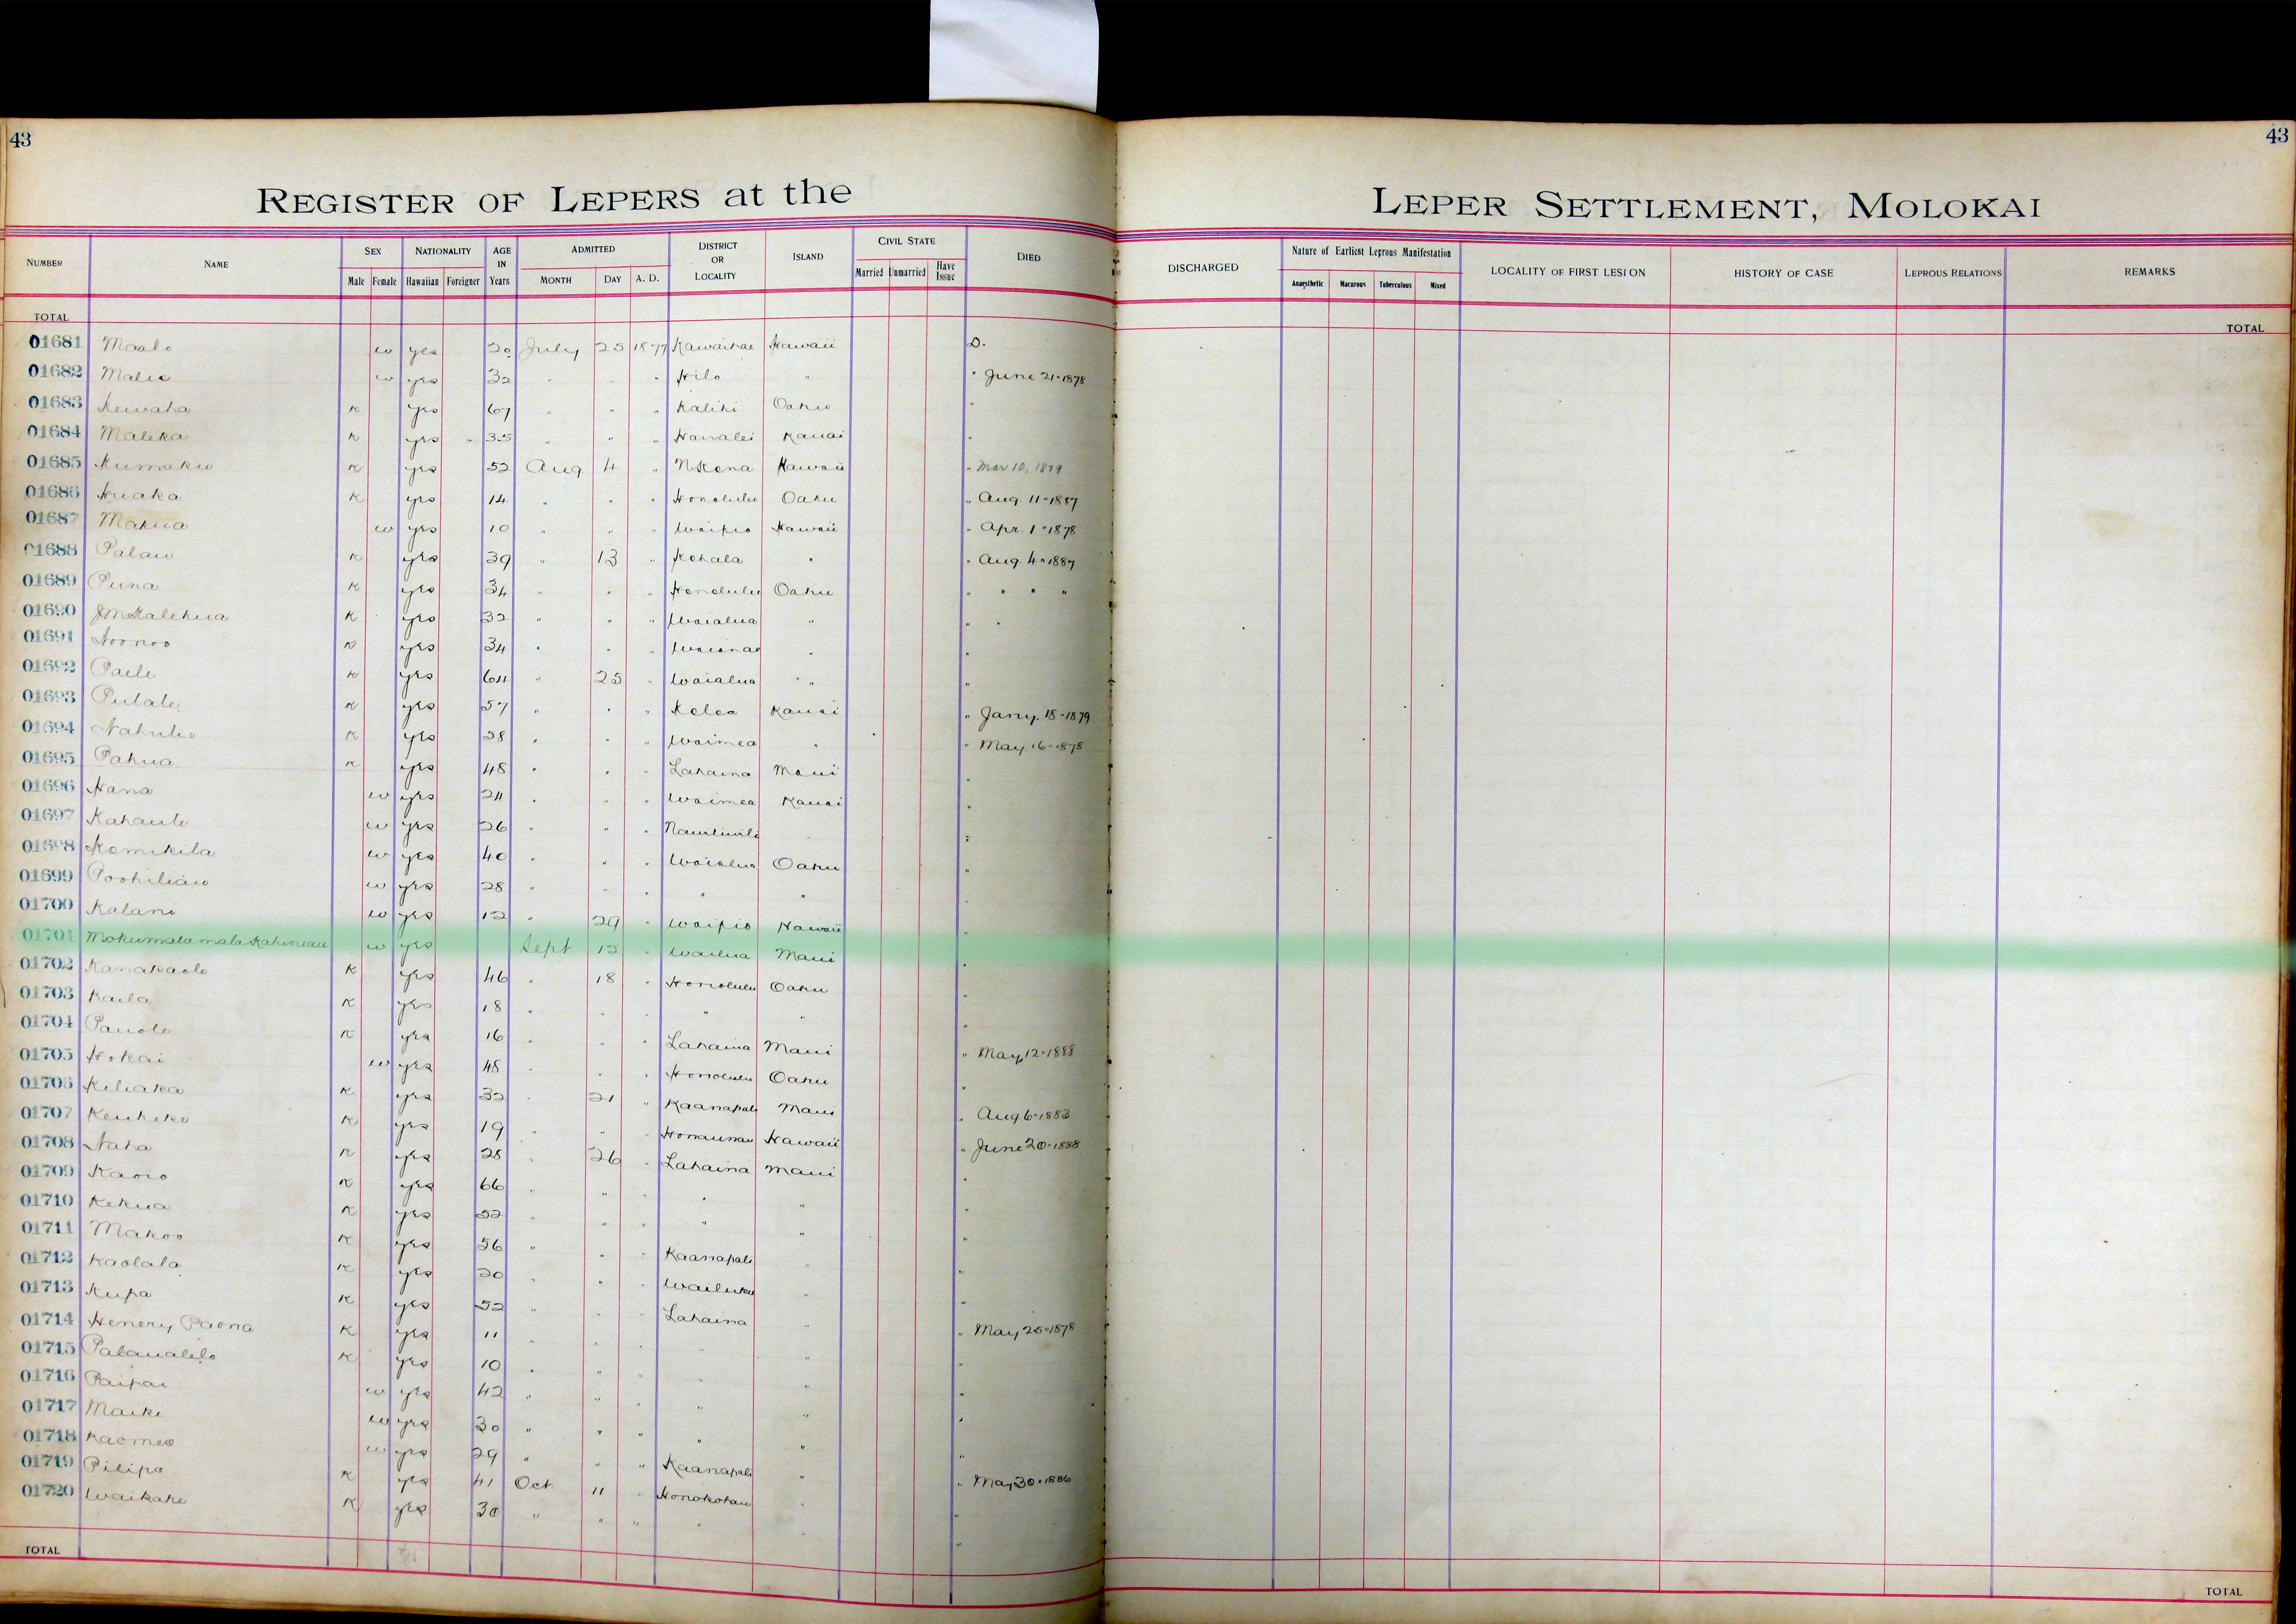 43
43
REGISTER OF LEPERS at the
LEPER SETTLEMENT, MOLOKAI
NUMBER NAME SEX NATIONALITY AGE IN Years ADMITTED DISTRICT OR LOCALITY ISLAND CIVIL STATE DIED DISCHARGED Nature of Earliest Leprous Manifestation LOCALITY OF FIRST LESION HISTORY OF CASE LEPROUS RELATIONS REMARKS
Male Female Hawaiian Foreigner MONTH DAY A. D. Married Unmarried Have Issue Anaesthetic Macurous Tuberculous Mixed
TOTAL TOTAL
01681 Maalo w yes 20 July 25 1877 Kawaihae Hawaii D.
01682 w yes 32 " " " Hilo " " June 21-1878
01683 Kewaha K yes 67 " " " Kalihi Oahu "
01684 Maleka K yes 35 " " " Hanalei Kauai "
01685 Kumaku K yes 52 Aug 4 " N Kona Hawaii " Mar 10, 1879
01686 Huaka K yes 14 " " " Honolulu Oahu " Aug. 11-1887
01687 Makua w yes 10 " " " Waipio Hawaii " Apr. 1-1878
01688 Palau K yes 39 " 13 " Kohala " " Aug. 4-1887
01689 Puna K yes 34 " " " Honolulu Oahu " " " "
01690 J M Kalehua K yes 32 " " " Waialua " " "
01691 Noonoo K yes 34 " " " Waianae " "
01692 Paele K yes 64 " 25 " Waialua " " "
01693 Pulale K yes 57 " " " Kolea Kauai " Jany. 18-1879
01694 K yes 28 " " " Waimea " " May 16-1878
01695 Pahua K yes 48 " " " Lahaina Maui "
01696 Hana w yes 24 " " " Waimea Kauai "
01697 Kahaule w yes 26 " " " "
01698 Kamikila w yes 40 " " " Waialua Oahu "
01699 Poohiliau w yes 28 " " " " " "
01700 Kalani w yes 12 " 29 " Waipio Hawaii "
01701 Mokumalamala Kahiniau w yes Sept 12 " Wailua Maui "
01702 Kanakaole K yes 46 " 18 " Honolulu Oahu "
01703 Kaila K yes 18 " " " " " "
01704 Pauole K yes 16 " " " Lahaina Maui " May 12-1888
01705 Hokai w yes 48 " " " Honolulu Oahu "
01706 Keliaka K yes 32 " 21 " Kaanapali Maui " Aug 6-1883
01707 K yes 19 " " " Honaunau Hawaii " June 20-1888
01708 Naha K yes 28 " 26 " Lahaina Maui "
01709 K yes 66 " " " " " "
01710 Kekua K yes 52 " " " " " "
01711 Makoo K yes 56 " " " Kaanapali " "
01712 Kaolala K yes 20 " " " Wailuku " "
01713 Kupa K yes 52 " " " Lahaina " " May 25-1878
01714 Henery Paona K yes 11 " " " " " "
01715 Palaualelo K yes 10 " " " " " "
01716 Paipai w yes 42 " " " " " "
01717 Maiki w yes 30 " " " " " "
01718 Kaomea w yes 29 " " " Kaanapali " " May 30-1886
01719 Pilipo K yes 41 Oct 11 " Honokohau " "
01720 Waikahe K yes 30 " " " " " "
TOTAL TOTAL